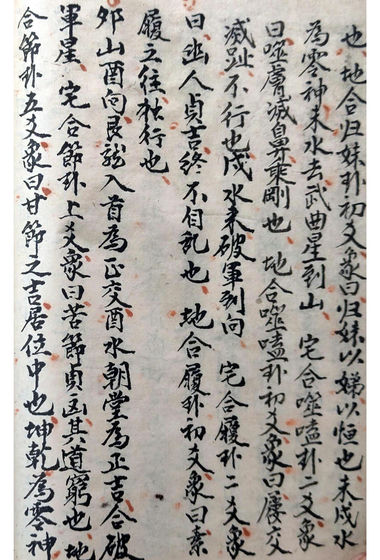 也 地合归妹卦初爻象曰归妹以娣以恒也未戌水
為零神未水去武曲星到山 宅合噬嗑卦二爻象
曰噬膚滅鼻乘剛也 地合噬嗑卦初爻象曰屢交
滅趾不行也戌水来破軍到向 宅合履卦二爻象
曰幽人貞吉终不自乱也 地合履卦初爻象曰素
履之往独行也
夘山酉向艮龍入首為正交酉水朝堂為正吉合破
軍星 宅合節卦上爻象曰苦節貞凶其道窮也 地
合節卦五爻象曰甘節之吉居位中也坤乾為零神